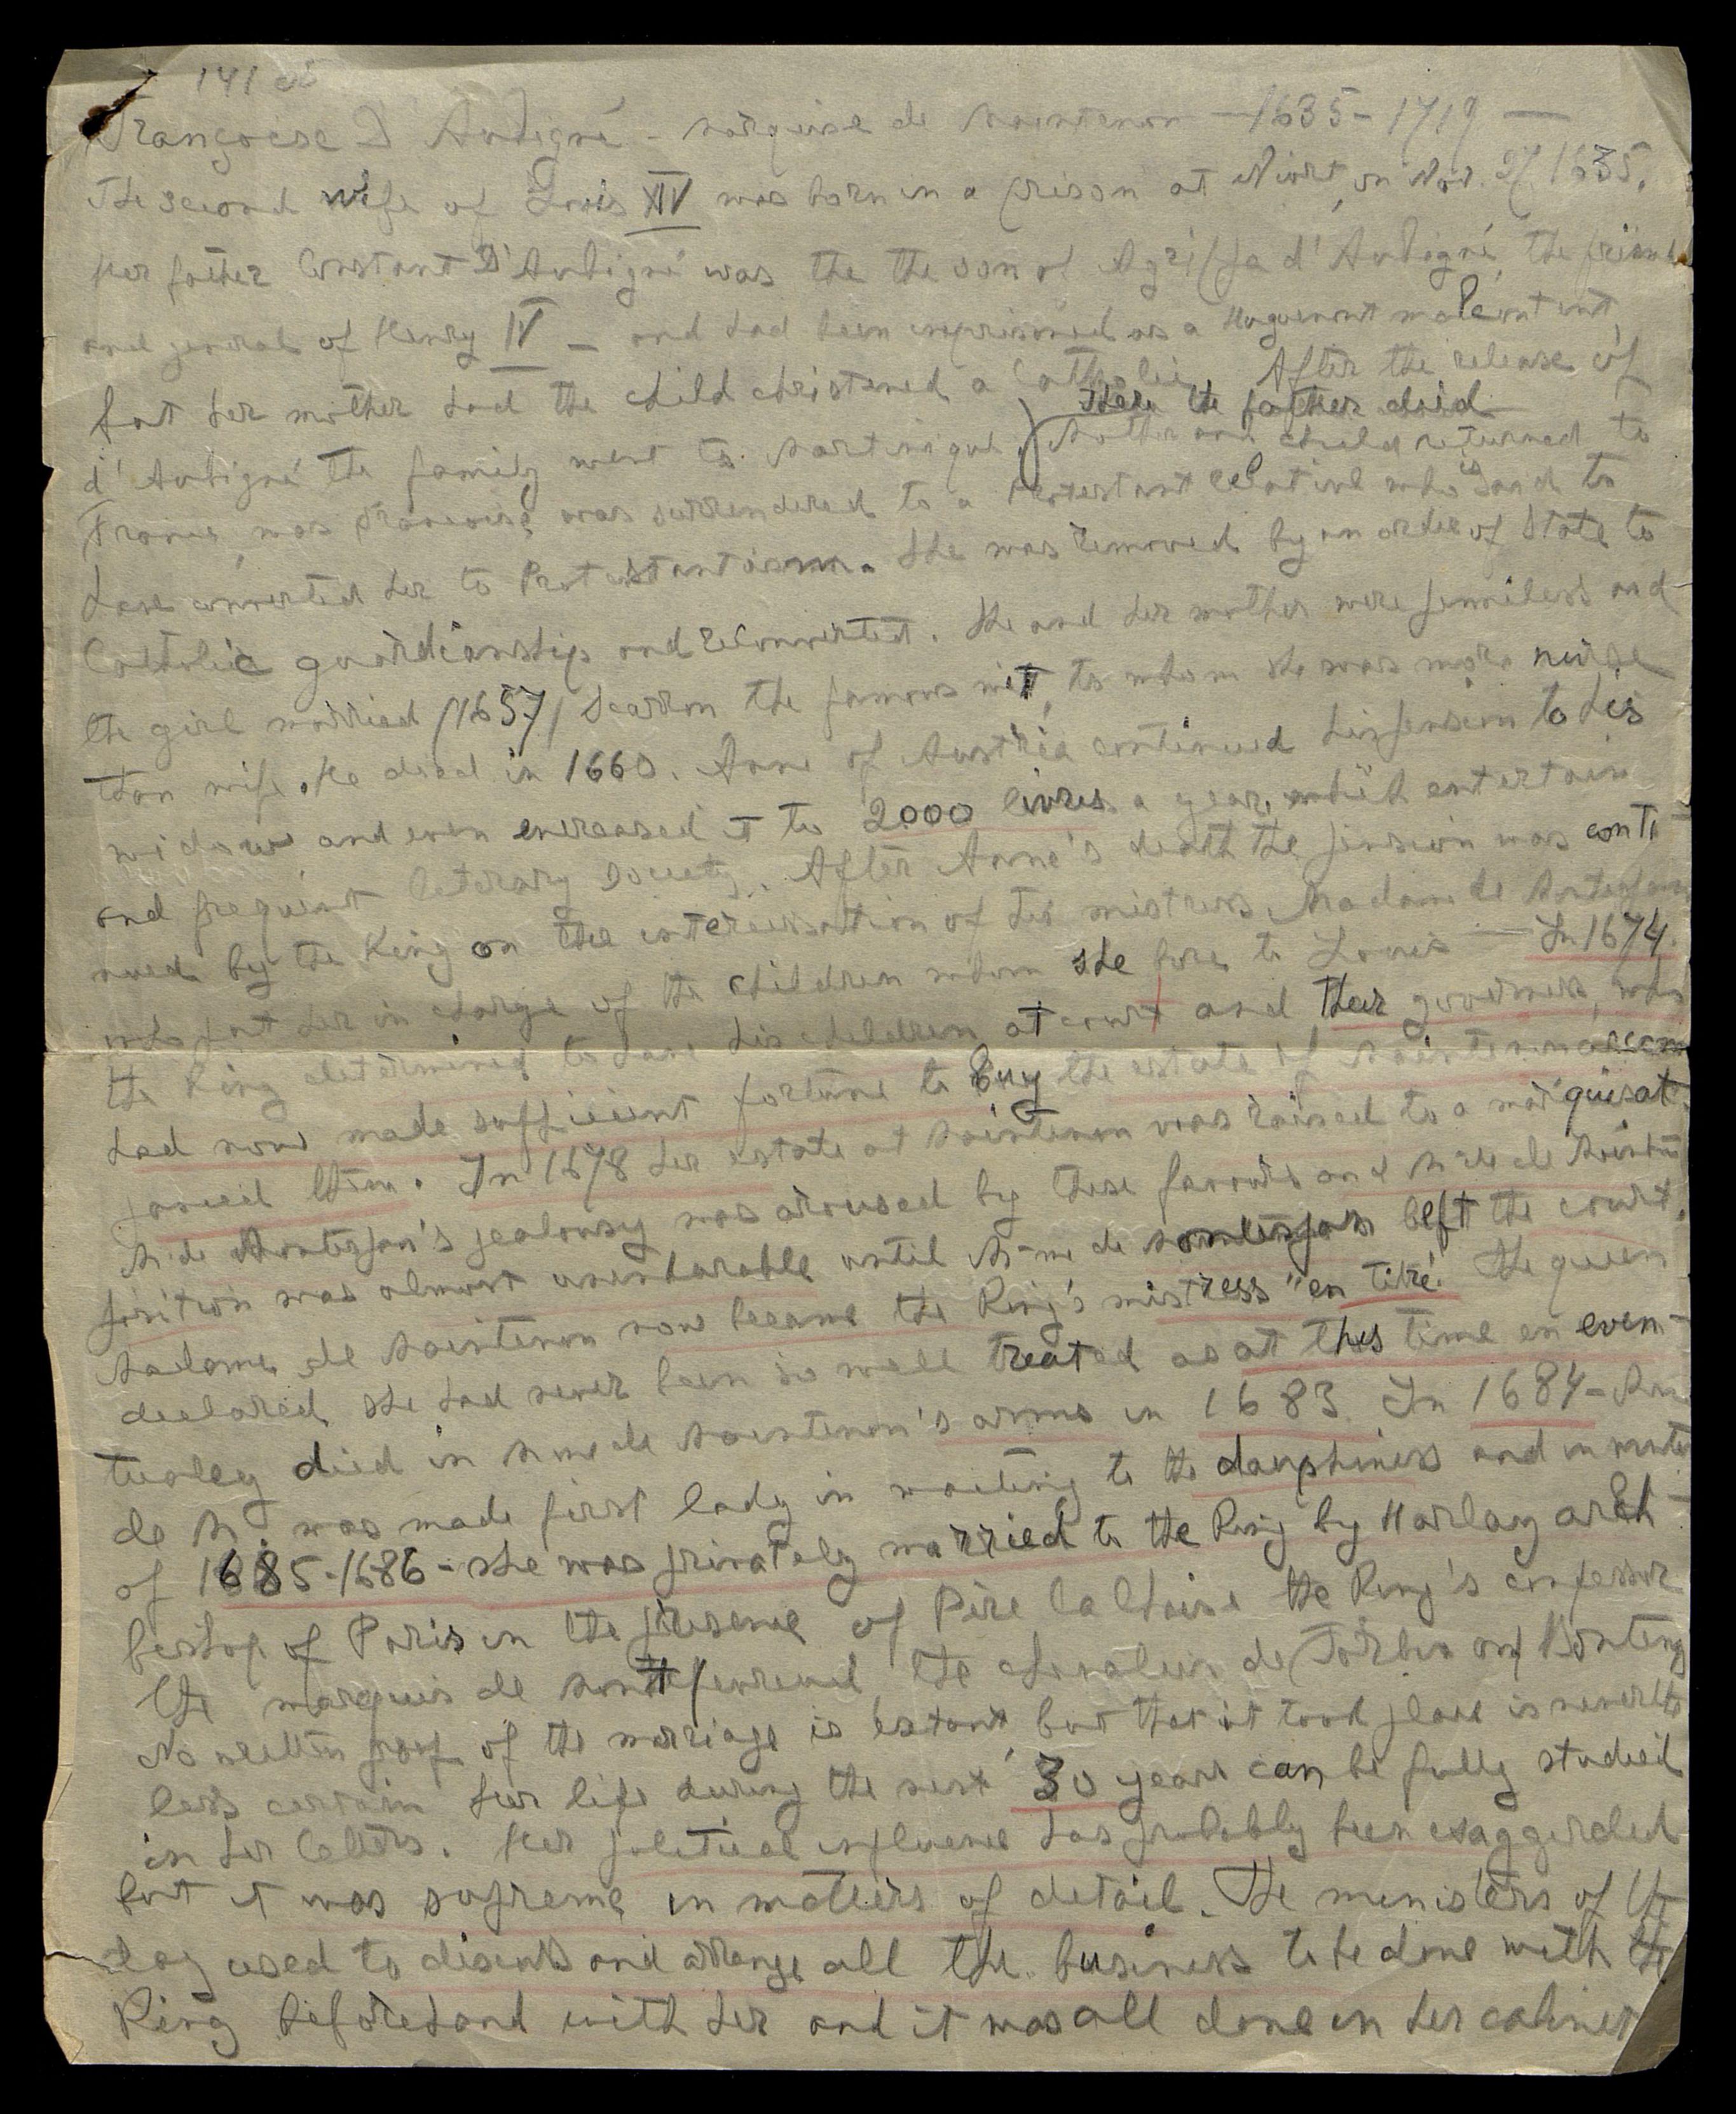 141
Françoise D'Aubigné - Marquise de Maintenon - 1635 - 1719 -
The second wife of Louis XIV was born in a prison at Niort, on Nov. 27 1635.
Her father Constant D'Aubigné was the the son of Agrippa d'Aubigné, the friend
and general of Henry IV - and had been imprisoned as a Huguenot malcontent,
but her mother had the child christened a Catholic. After the release of
There the father died
d'Aubigné the family went to Martinique. Mother and child returned to
France, was Françoise was surrendered to a Protestant relative who is said to
have converted her to Protestantism. She was removed by an order of State to
Catholic guardianship and reconverted. She and her mother were penniless and
the girl married (1657) Scarron the famous wit, to whom she was more nurse
than wife. He died in 1660. Anne of Austria continued his pension to his
widow and even encreased it to 2000 livres a year, which entertain
and frequent literary society. After Anne's death the pension was conti-
nued by the King on the intercession of his mistress, Madame de Montespan
who put her in charge of the children whom she bore to Louis - In 1674
the King determined to have his children at court and their governess, who
had now made sufficient fortune to buy the estate of Maintenon accom
panied them. In 1678 her estate at Maintenon was raised to a marquisat.
M. de Montespan's jealousy was aroused by these favours and Mme de Mainten
position was almost unendurable until Mme de Montespan left the court.
Madame de Maintenon now became the King's mistress "en titre". The queen
declared she had never been so well treated as at this time en even-
tually died in Mme de Maintenon's arms in 1683. In 1684 - Mm
de M. was made first lady in waiting to the dauphiness and in winter
of 1685-1686 - she was privately married to the King by Harlay arch-
bishop of Paris in the presence of Père la Chaise the King's confessor
the marquis de Montchevreuil, the chevalier de Forbin and Bontemps
No written proof of the marriage is extant, but that it took place is neverthe
less certain her life during the next 30 years can be fully studied
in her letters. Her political influence has probably been exaggerated
but it was supreme in matters of detail. The ministers of the
day used to discuss and arrange all the business to be done with the
King beforehand with her and it was all done in her cabinet